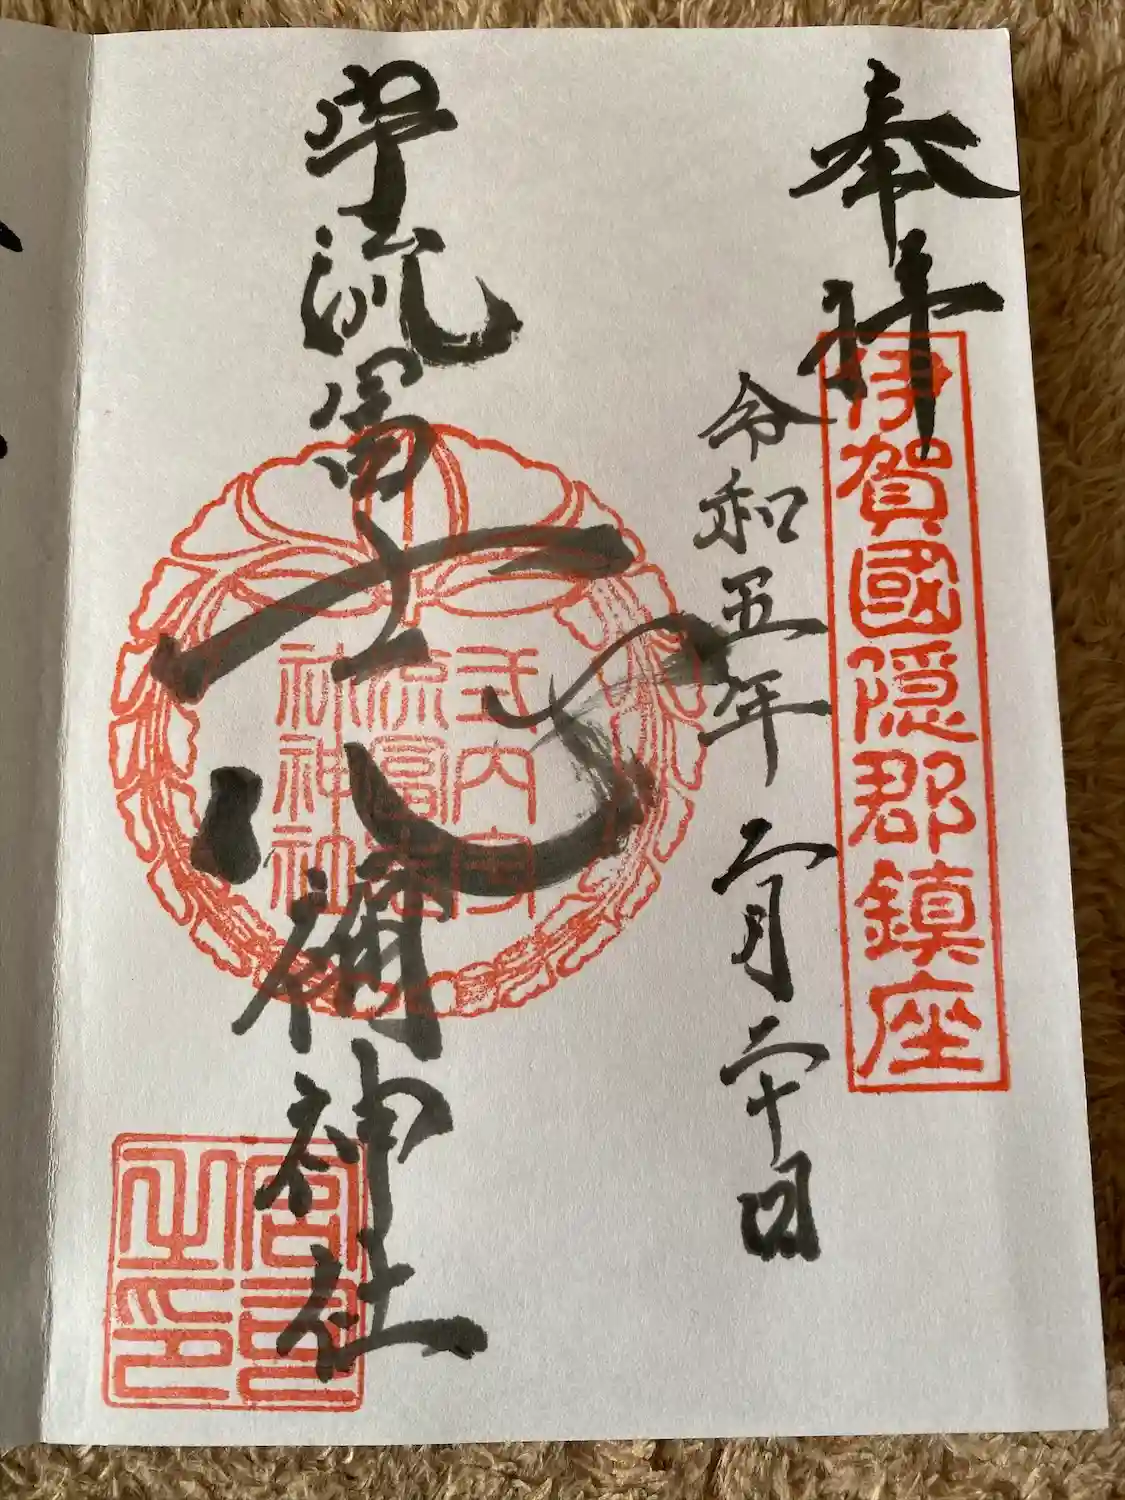 奉拝
伊賀國隠郡鎮座
令和五年二月二十日
宇流冨志禰神社
式内宇
流冨志
祢神社
宮司
之印